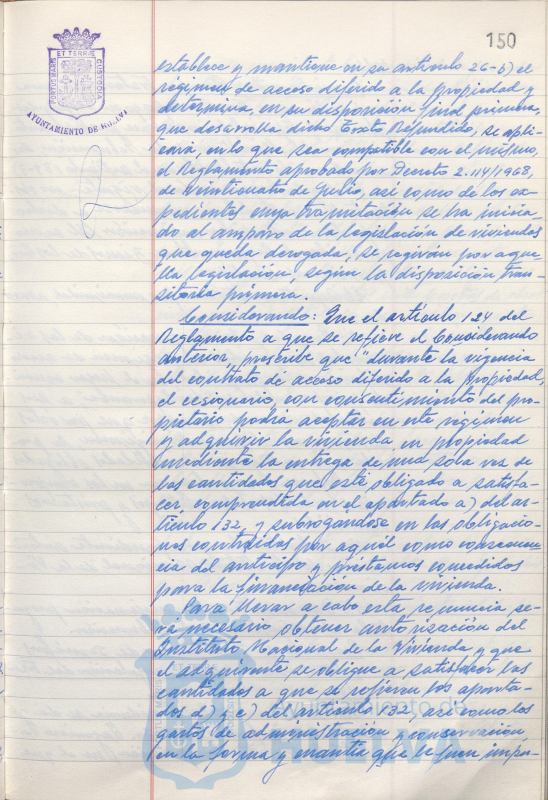 150
PORTUS MARIS ET TERRAE CUSTODIA
AYUNTAMIENTO DE HUELVA
establece y mantiene en su artículo 26-b) el
régimen de acceso diferido a la propiedad y
determina, en su disposición final primera,
que desarrolla dicho Texto Refundido, se apli-
cará, en lo que sea compatible con el mismo,
el Reglamento aprobado por Decreto 2.114/1968,
de Veinticuatro de Julio, así como de los ex-
pedientes cuya tramitación se ha inicia-
do al amparo de la legislación de viviendas
que queda derogada, se regirán por aque-
lla legislación, según la disposición tran-
sitoria primera.
Considerando: Que el artículo 124 del
Reglamento a que se refiere el Considerando
anterior, prescribe que "durante la vigencia
del contrato de acceso diferido a la propiedad,
el cesionario, con consentimiento del pro-
pietario podrá aceptar en este régimen
y adquirir la vivienda en propiedad
mediante la entrega de una sola vez de
las cantidades que esté obligado a satisfa-
cer, comprendida en el apartado a) del ar-
tículo 132, y subrogandose en las obligacio-
nes contraidas por aquél como consecuen-
cia del anticipo y préstamos concedidos
para la financiación de la vivienda.
Para llevar a cabo esta renuncia se-
rá necesario obtener autorización del
Instituto Nacional de la Vivienda y que
el adquirente se obligue a satisfacer las
cantidades a que se refieren los aparta-
dos d) y e) del artículo 132, así como los
gastos de administración y conservación,
en la forma y cuantía que le sean impu-
Ayuntamiento de
HUELVA